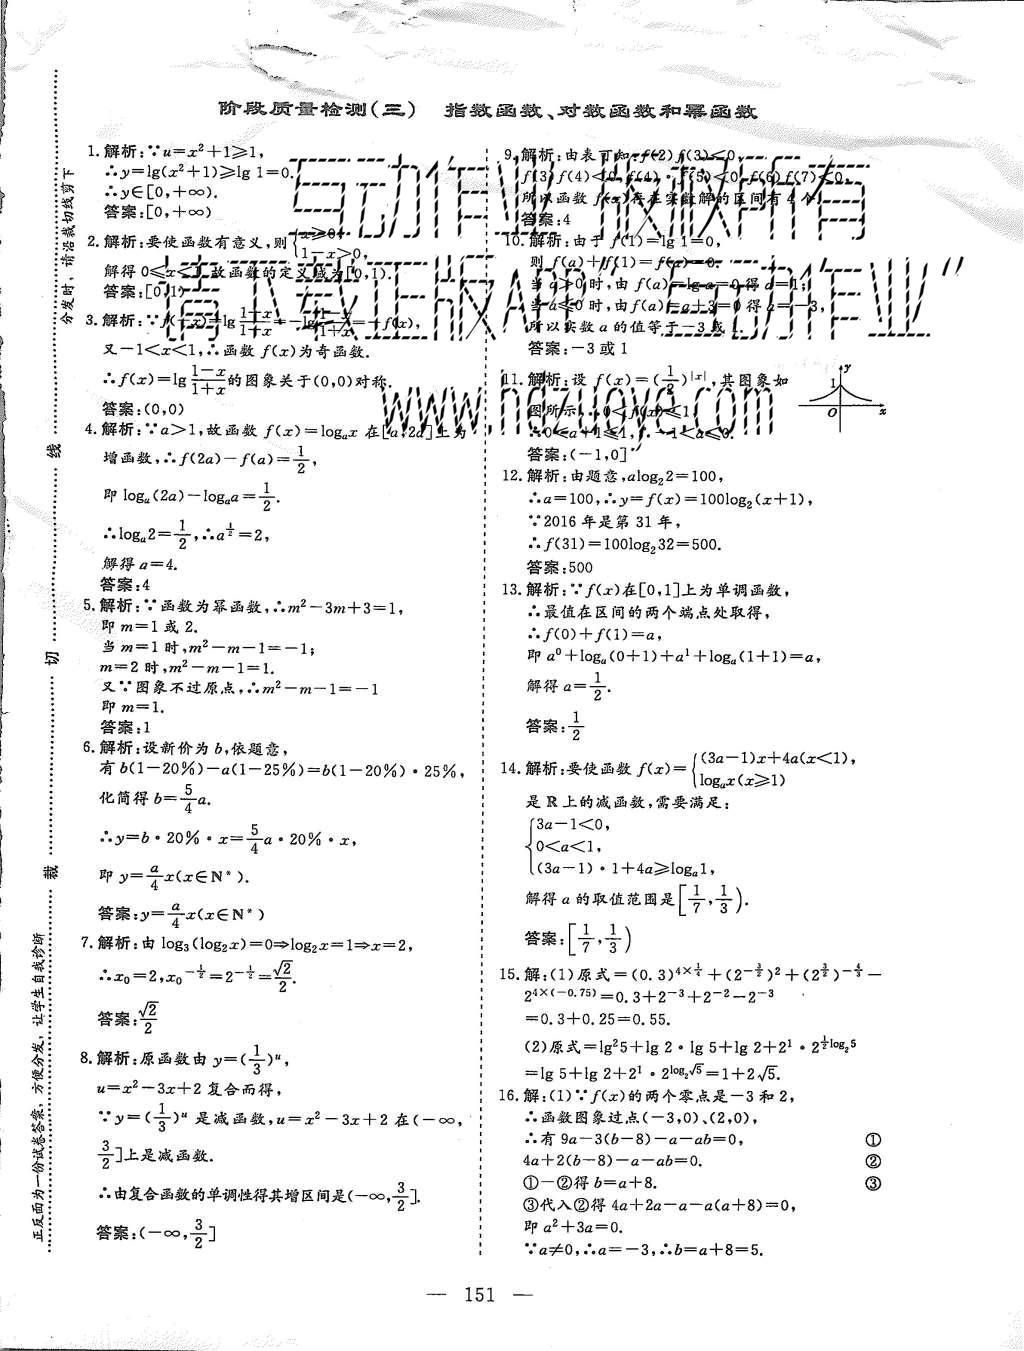 阶段质量检测(三)　指数函数、对数函数和幂函数
1.解析:∵u=x²+1⩾1,
∴y=lg(x²+1)⩾lg 1=0.
∴y∈[0,+∞).
答案:[0,+∞)
2.解析:要使函数有意义,则{x⩾0,
1-x>0,
解得 0⩽x<1,故函数的定义域为[0,1).
答案:[0,1)
3.解析:∵f(-x)=lg (1+x)/(1-x)=-lg (1-x)/(1+x)=-f(x),
又-1<x<1,∴函数 f(x)为奇函数.
∴f(x)=lg (1-x)/(1+x)的图象关于(0,0)对称.
答案:(0,0)
4.解析:∵a>1,故函数 f(x)=logₐx 在[a,2a]上为
增函数,∴f(2a)-f(a)=1/2,
即 logₐ(2a)-logₐa=1/2.
∴logₐ2=1/2,∴a^(1/2)=2,
解得 a=4.
答案:4
5.解析:∵函数为幂函数,∴m²-3m+3=1,
即 m=1 或 2.
当 m=1 时,m²-m-1=-1;
m=2 时,m²-m-1=1.
又∵图象不过原点,∴m²-m-1=-1
即 m=1.
答案:1
6.解析:设新价为 b,依题意,
有 b(1-20%)-a(1-25%)=b(1-20%)·25%,
化简得 b=5/4 a.
∴y=b·20%·x=5/4 a·20%·x,
即 y=a/4 x(x∈N*).
答案:y=a/4 x(x∈N*)
7.解析:由 log₃(log₂x)=0⇒log₂x=1⇒x=2,
∴x₀=2,x₀^(-1/2)=2^(-1/2)=√2/2.
答案:√2/2
8.解析:原函数由 y=(1/3)^u,
u=x²-3x+2 复合而得,
∵y=(1/3)^u 是减函数,u=x²-3x+2 在(-∞,
3/2]上是减函数.
∴由复合函数的单调性得其增区间是(-∞,3/2].
答案:(-∞,3/2]
9.解析:由表可知:f(2)f(3)<0,
f(3)f(4)<0,f(4)·f(5)<0,f(6)f(7)<0,
所以函数 f(x)存在实数解的区间有 4 个.
答案:4
10.解析:由于 f(1)=lg 1=0,
则 f(a)+f(1)=f(a)=0.
当 a>0 时,由 f(a)=lg a=0 得 a=1;
当 a⩽0 时,由 f(a)=a+3=0 得 a=-3,
所以实数 a 的值等于-3 或 1.
答案:-3 或 1
11.解析:设 f(x)=(1/2)^|x|,其图象如
图所示,∴0<f(x)⩽1,
∴0<a+1⩽1,∴-1<a⩽0.
答案:(-1,0]
y
1
O
x
12.解析:由题意,alog₂2=100,
∴a=100,∴y=f(x)=100log₂(x+1),
∵2016 年是第 31 年,
∴f(31)=100log₂32=500.
答案:500
13.解析:∵f(x)在[0,1]上为单调函数,
∴最值在区间的两个端点处取得,
∴f(0)+f(1)=a,
即 a⁰+logₐ(0+1)+a¹+logₐ(1+1)=a,
解得 a=1/2.
答案:1/2
14.解析:要使函数 f(x)={(3a-1)x+4a(x<1),
logₐx(x⩾1)
是 R 上的减函数,需要满足:
{3a-1<0,
0<a<1,
(3a-1)·1+4a⩾logₐ1,
解得 a 的取值范围是[1/7,1/3).
答案:[1/7,1/3)
15.解:(1)原式=(0.3)^(4×1/4)+(2^(-3/2))²+(2^(3/2))^(-4/3)-
2^(4×(-0.75))=0.3+2⁻³+2⁻²-2⁻³
=0.3+0.25=0.55.
(2)原式=lg²5+lg 2·lg 5+lg 2+2¹·2^(1/2 log₂5)
=lg 5+lg 2+2¹·2^(log₂√5)=1+2√5.
16.解:(1)∵f(x)的两个零点是-3 和 2,
∴函数图象过点(-3,0)、(2,0),
∴有 9a-3(b-8)-a-ab=0, ①
4a+2(b-8)-a-ab=0. ②
①-②得 b=a+8. ③
③代入②得 4a+2a-a-a(a+8)=0,
即 a²+3a=0.
∵a≠0,∴a=-3,∴b=a+8=5.
— 151 —
分发时,请沿裁切线剪下
线
切
裁
正反面为一份试卷答案,方便分发,让学生自我诊断
与互动作业 版权所有
请下载正版APP“互动作业”
www.hdzuoye.com